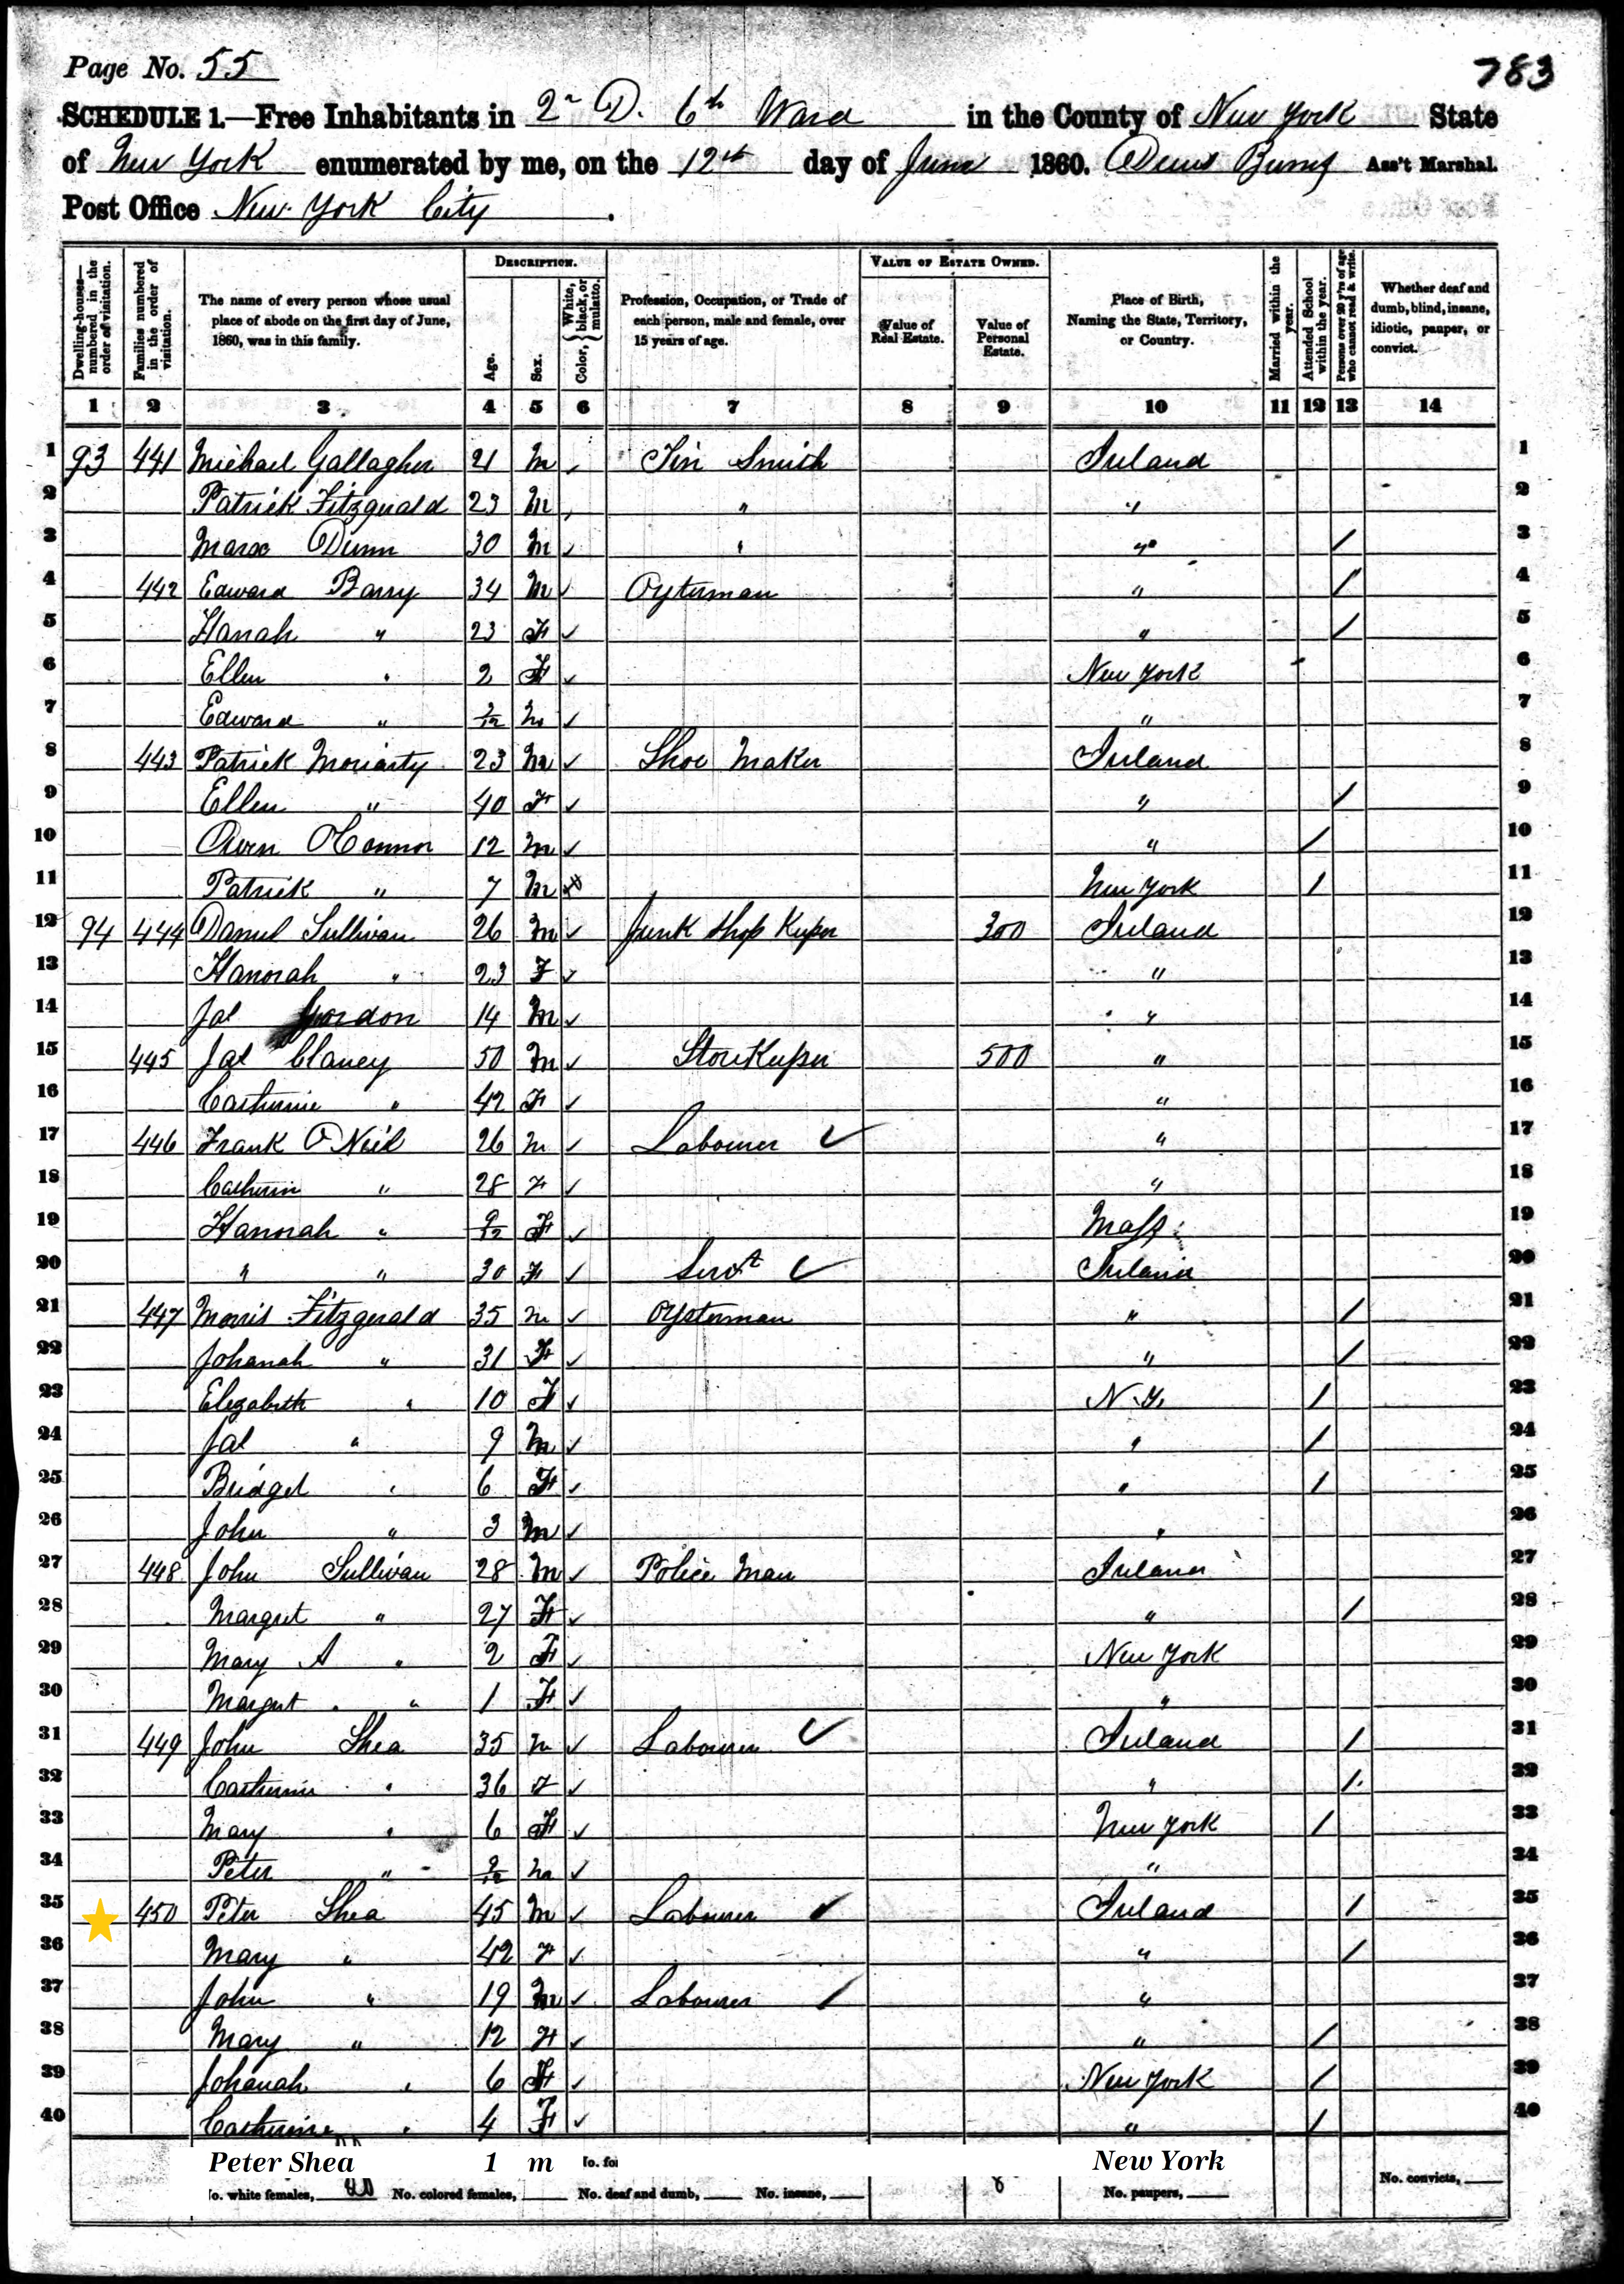 Page No. 55
783
SCHEDULE 1.—Free Inhabitants in 2n D. 6th Ward in the County of New York State
of New York enumerated by me, on the 12th day of June 1860. Ass't Marshal.
Post Office New York City.
Dwelling-houses—numbered in the order of visitation.
Families numbered in the order of visitation.
The name of every person whose usual place of abode on the first day of June, 1860, was in this family.
DESCRIPTION.
Age.
Sex.
Color, { White, black, or mulatto.
Profession, Occupation, or Trade of each person, male and female, over 15 years of age.
VALUE OF ESTATE OWNED.
Value of Real Estate.
Value of Personal Estate.
Place of Birth, Naming the State, Territory, or Country.
Married within the year.
Attended School within the year.
Persons over 20 y'rs of age who cannot read & write.
Whether deaf and dumb, blind, insane, idiotic, pauper, or convict.
1 2 3 4 5 6 7 8 9 10 11 12 13 14
1 93 441 Michael Gallagher 21 M Tin Smith Ireland 1
2 Patrick Fitzgerald 23 M " " 2
3 Dunn 30 M ✓ " " / 3
4 442 Edward Barry 34 M ✓ Oysterman " / 4
5 Hanah " 23 F ✓ " / 5
6 Ellen " 2 F ✓ New York 6
7 Edward " M ✓ " 7
8 443 Patrick Moriarty 23 M ✓ Shoe Maker Ireland 8
9 Ellen " 40 F ✓ " / 9
10 Owen OConnor 12 M ✓ " / 10
11 Patrick " 7 M New York / 11
12 94 444 Daniel Sullivan 26 M ✓ Junk Shop Keeper 300 Ireland 12
13 Hanorah " 23 F ✓ " 13
14 Jas Gordon 14 M ✓ " 14
15 445 Jas Clancy 50 M ✓ StoreKeeper 500 " 15
16 Catherine " 42 F ✓ " 16
17 446 Frank O Neil 26 M ✓ Labourer ✓ " 17
18 Catherin " 28 F ✓ " 18
19 Hanorah " 9/12 F ✓ Mass 19
20 " " 30 F ✓ Servt ✓ Ireland 20
21 447 Morris Fitzgerald 35 M ✓ Oysterman " / 21
22 Johanah " 31 F ✓ " / 22
23 Elizabeth " 10 F ✓ N.Y. / 23
24 Jas " 9 M ✓ " / 24
25 Bridget " 6 F ✓ " / 25
26 John " 3 M ✓ " 26
27 448 John Sullivan 28 M ✓ Police Man Ireland 27
28 Margret " 27 F ✓ " / 28
29 Mary A " 2 F ✓ New York 29
30 Margret " 1 F ✓ " 30
31 449 John Shea 35 M ✓ Labourer ✓ Ireland / 31
32 Catherine " 36 F ✓ " / 32
33 Mary " 6 F ✓ New York / 33
34 Peter " M ✓ " 34
35 450 Peter Shea 45 M ✓ Labourer ✓ Ireland / 35
36 Mary " 42 F ✓ " / 36
37 John " 19 M ✓ Labourer / " 37
38 Mary " 12 F ✓ " / 38
39 Johanah " 6 F ✓ New York / 39
40 Catherine " 4 F ✓ " / 40
Peter Shea 1 m New York
No. white females, No. colored females, No. deaf and dumb, No. insane, No. paupers, No. convicts,